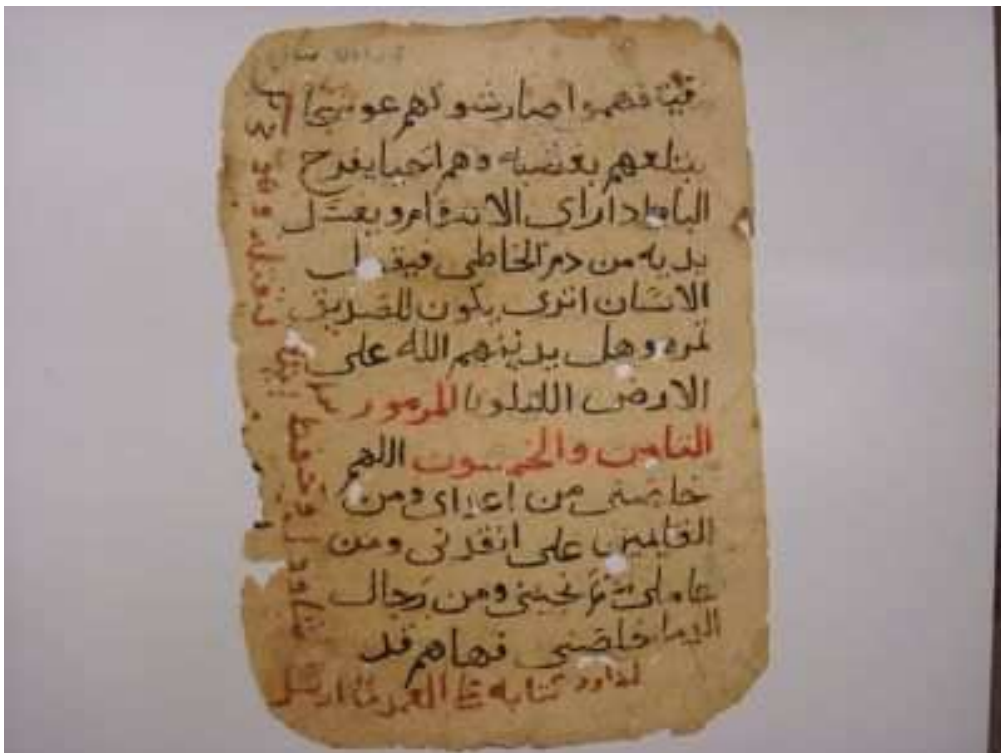 فهموا صار شوكهم عوسجا
يبتلعهم بغضبه وهم احيا يفرح
البار اذا راى الانتقام ويغسل
يديه من دم الخاطى فيقول
الانسان اترى يكون للصديق
ثمره وهل يدينهم الله على
الارض الليلويا المزمور
الثامن والخمسون اللهم
خلصنى من اعداى ومن
القايمين على انقدنى ومن
عاملى نجينى ومن رجال
الدما خلصنى فهاهم قد
لداود كتابه العمد ارسل
شاول وحفظ ليقتله